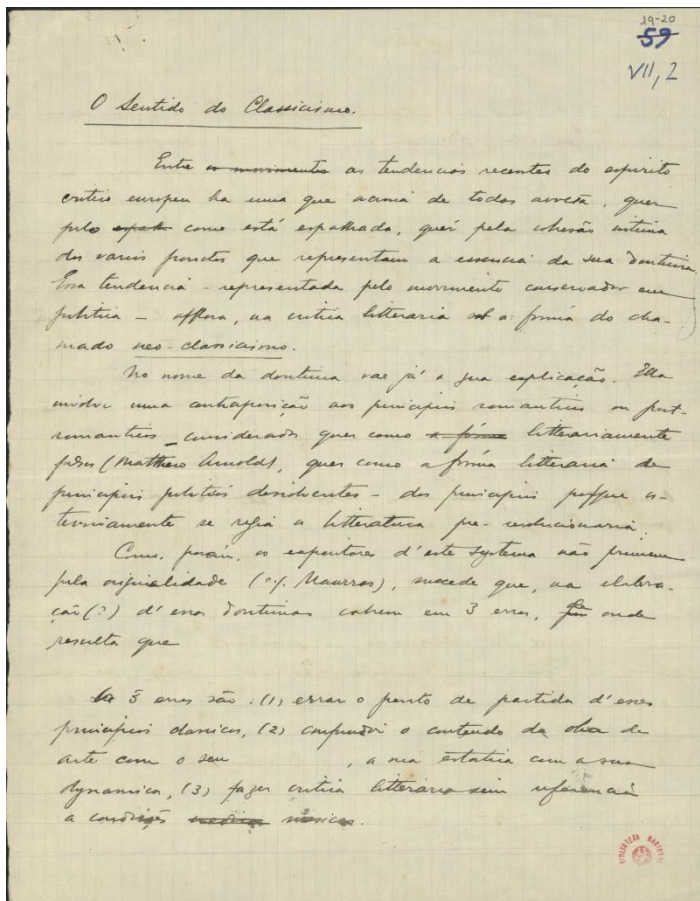 19-20
59
VII, 2
O Sentido do Classicismo.
Entre os movimentos as tendencias recentes do espirito
critico europeu ha uma que acima de todas avulta, quer
pelo como está espalhada, quer pela cohesão intima
dos varios pontos que representam a essencia da sua doutrina.
Essa tendencia - representada pelo movimento conservador em
politica - afflora, na critica litteraria sob a forma do cha-
mado neo-classicismo.
No nome da doutrina vae já a sua explicação. Ella
envolve uma contraposição aos principios romanticos ou post-
romanticos - considerados quer como a fórma litterariamente
falsos (Matthew Arnold), quer como a fórma litteraria de
principios politicos dissolventes - dos principios porque an-
teriormente se regia a litteratura pre-revolucionaria.
Como, porém, os expositores d'este systema não primem
pela originalidade (e.g. Maurras), succede que, na elabora-
ção (?) d'essas doutrinas cahem em 3 erros, de onde
resulta que
Os 3 erros são: (1) errar o ponto de partida d'esses
principios classicos, (2) confundir o contendo da obra de
arte com o seu , a sua estatica com a sua
dynamica, (3) fazer critica litteraria sem referencia
a condições
BIBLIOTECA NACIONAL